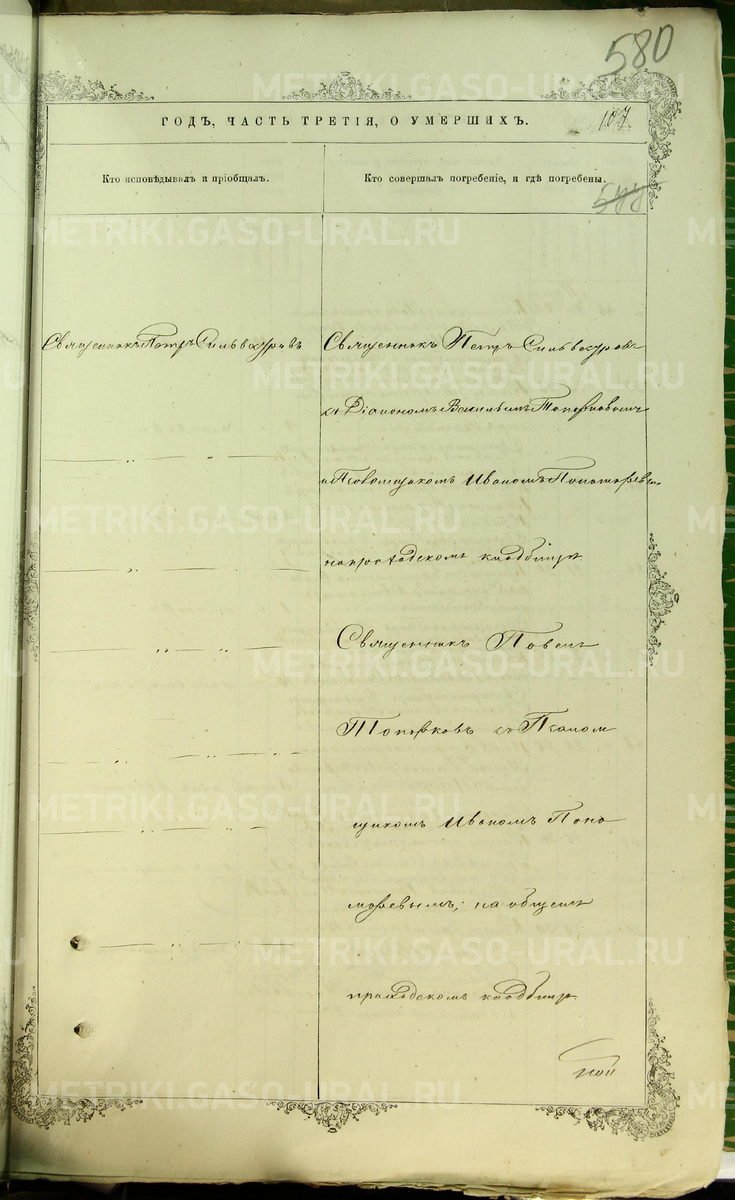 580
ГОДЪ, ЧАСТЬ ТРЕТІЯ, О УМЕРШИХЪ.
107.
Кто исповѣдывалъ и пріобщалъ.
Кто совершалъ погребеніе, и гдѣ погребены.
577
Священникъ Петръ Сильвестровъ
Священникъ Петръ Сильвестровъ
съ Діакономъ Васильемъ Топорковымъ
и Псаломщикомъ Иваномъ Пономаревымъ
на приходскомъ кладбищѣ
Священникъ Павелъ
Топорковъ съ Псалом
щикомъ Иваномъ Поно
маревымъ, на общемъ
приходскомъ кладбищѣ
METRIKI.GASO-URAL.RU